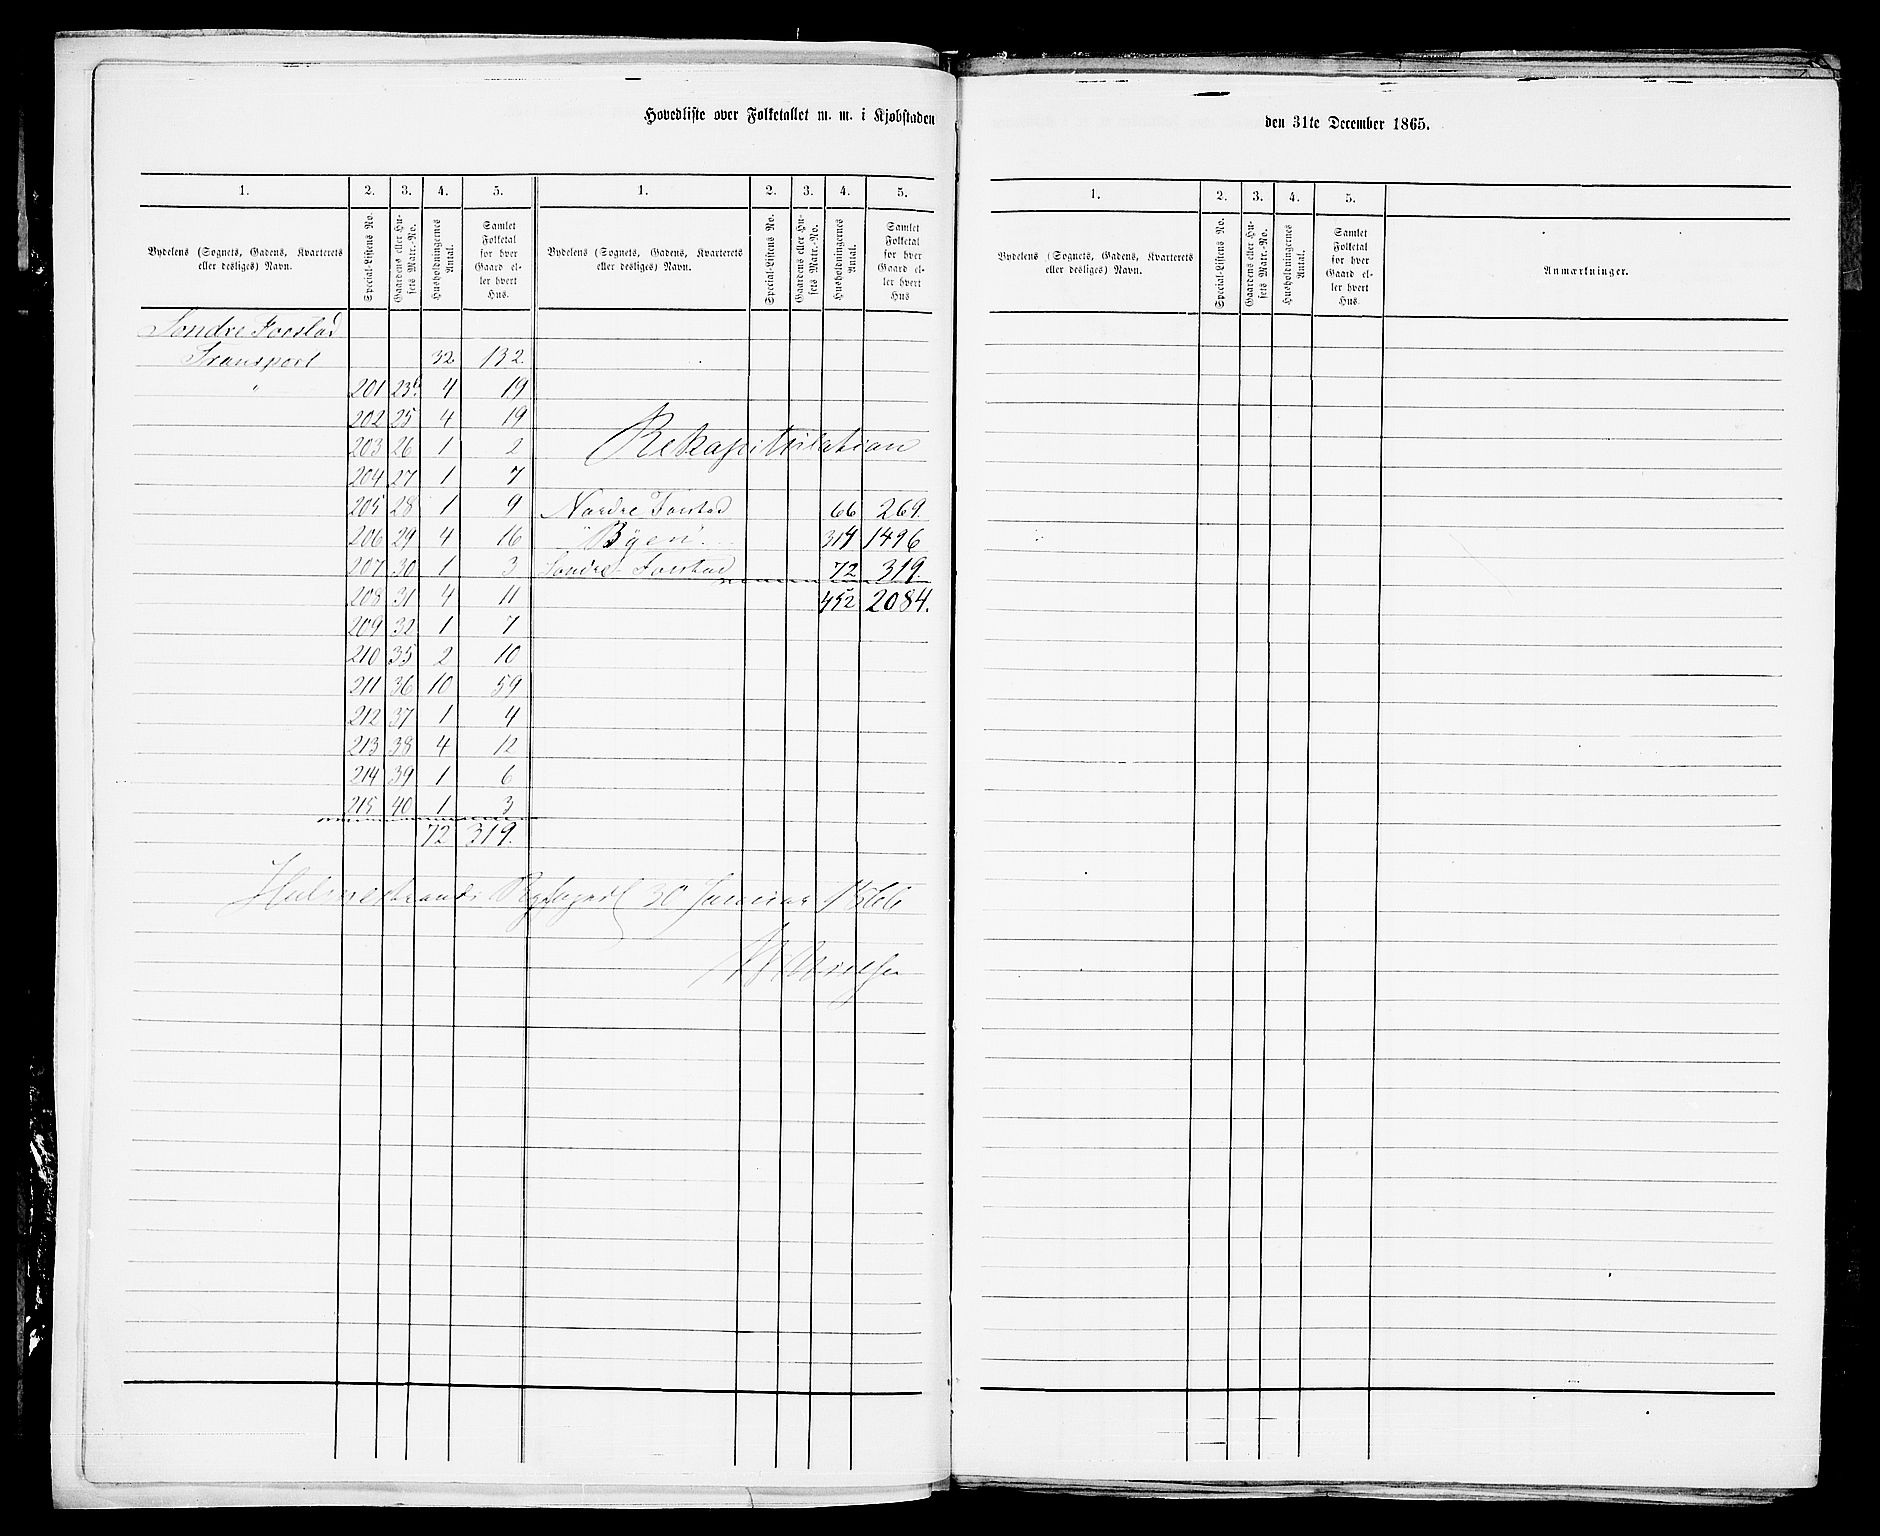 Hovedliste over Folketallet m. m. i Kjøbstaden den 31te December 1865.
1. 2. 3. 4. 5. 1. 2. 3. 4. 5. 1. 2. 3. 4. 5.
Bydelens (Sognets, Gadens, Kvarterets eller desliges) Navn. Special-Listens No. Gaardens eller Husets Matr.-No. Husholdningernes Antal. Samlet Folketal for hver Gaard eller hvert Hus.
Bydelens (Sognets, Gadens, Kvarterets eller desliges) Navn. Special-Listens No. Gaardens eller Husets Matr.-No. Husholdningernes Antal. Samlet Folketal for hver Gaard eller hvert Hus
Bydelens (Sognets, Gadens, Kvarterets eller desliges) Navn. Special-Listens No. Gaardens eller Husets Matr.-No. Husholdningernes Antal. Samlet Folketal for hver Gaard eller hvert Hus. Anmærkninger.
Søndre Forstad
Transport 32 132.
" 201 23b 4 19
202 25 4 19
203 26 1 2
204 27 1 7
205 28 1 9
206 29 4 16
207 30 1 3
208 31 4 11
209 32 1 7
210 35 2 10
211 36 10 59
212 37 1 4
213 38 4 12
214 39 1 6
215 40 1 3
72 319.
Rekapitulation
Nordre Forstad 66 269.
"Byen" 314 1496
Søndre Forstad 72 319.
452 2084.
Holmestrands 30 Januar 1866